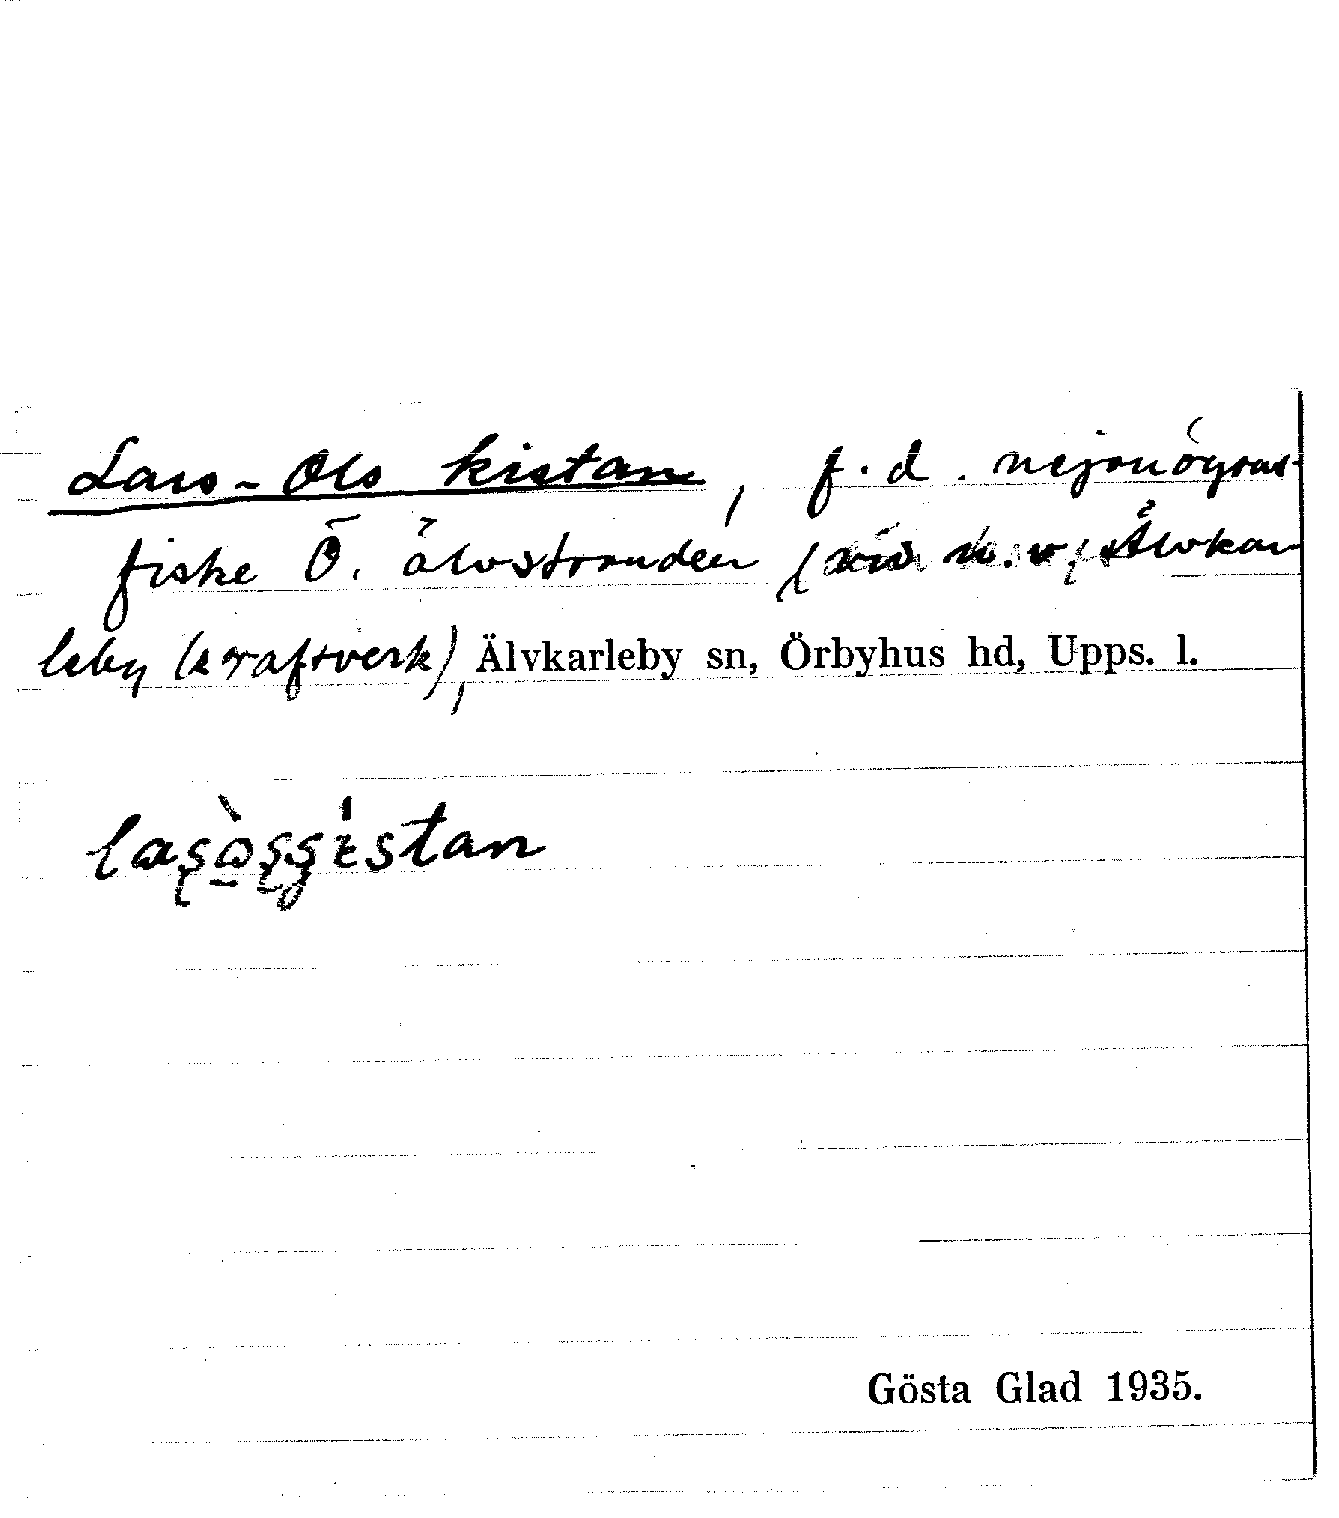 Lars-Ols kistan, f.d. nejonögons-
fiske Ö. älvstranden (vid Älvkar
leby (kraftverk), Älvkarleby sn, Örbyhus hd, Upps. l.
Gösta Glad 1935.